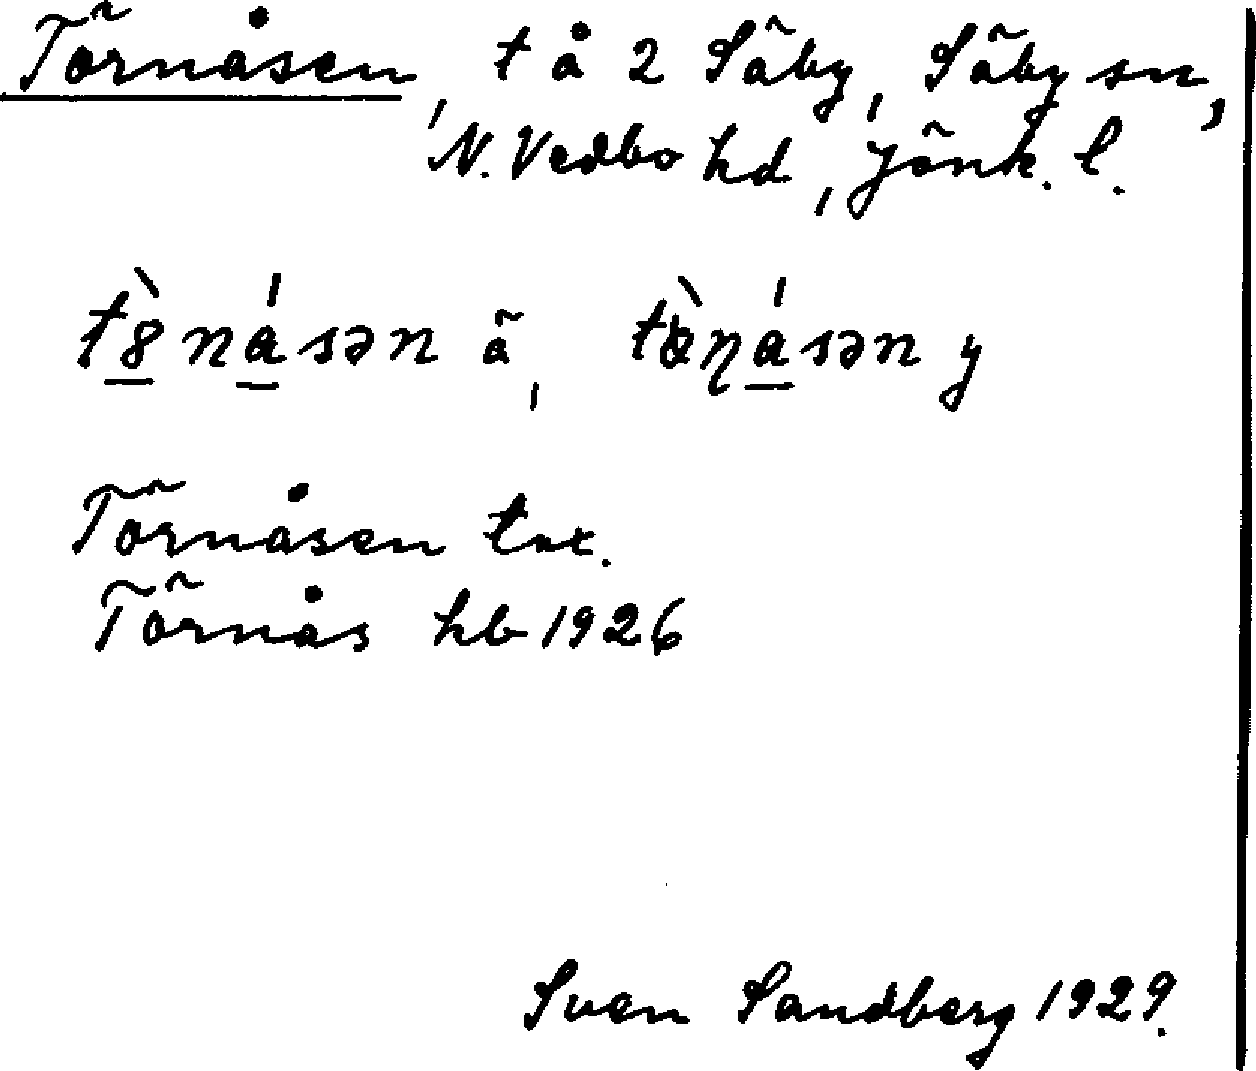 Törnåsen, t å 2 Säby, Säby sn,
N. Vedbo hd, Jönk. l.
tȣ̀ná̱sən ä, tὰ̱ŋá̱sən y
Törnåsen tax.
Törnås hb 1926
Sven Sandberg 1929.